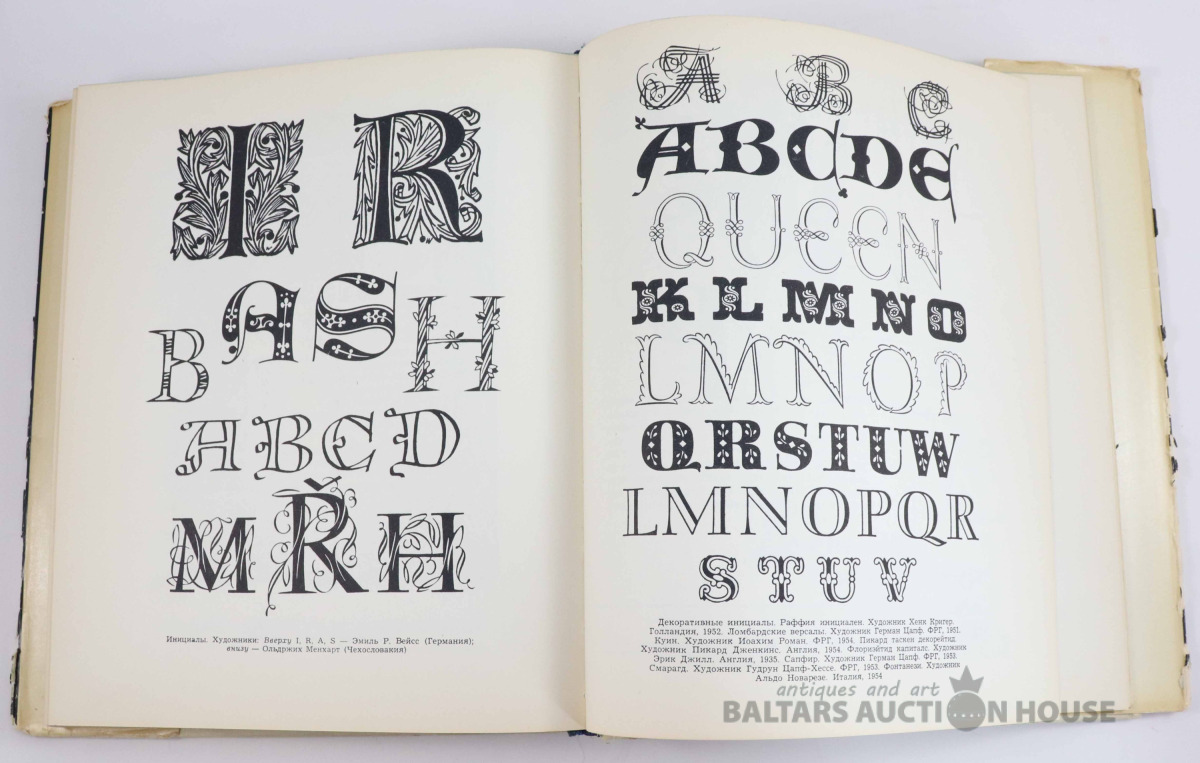 I R
B A S H
A B C D
M Ř H
Инициалы. Художники: Вверху I, R, A, S — Эмиль Р. Вейсс (Германия);
внизу — Ольдржих Менхарт (Чехословакия)
A B C
ABCDE
QUEEN
K L M N O
LMNOP
QRSTUW
LMNOPQR
STUV
Декоративные инициалы. Раффия инициален. Художник Хенк Кригер.
Голландия, 1952. Ломбардские версалы. Художник Герман Цапф. ФРГ, 1951.
Куин. Художник Иоахим Роман. ФРГ, 1954. Пикард таскен декорейтид.
Художник Пикард Дженкинс. Англия, 1954. Флориэйтид капиталс. Художник
Эрик Джилл. Англия, 1935. Сапфир. Художник Герман Цапф. ФРГ, 1953.
Смарагд. Художник Гудрун Цапф-Хессе. ФРГ, 1953. Фонтанези. Художник
Альдо Новарезе. Италия, 1954
antiques and art
BALTARS AUCTION HOUSE